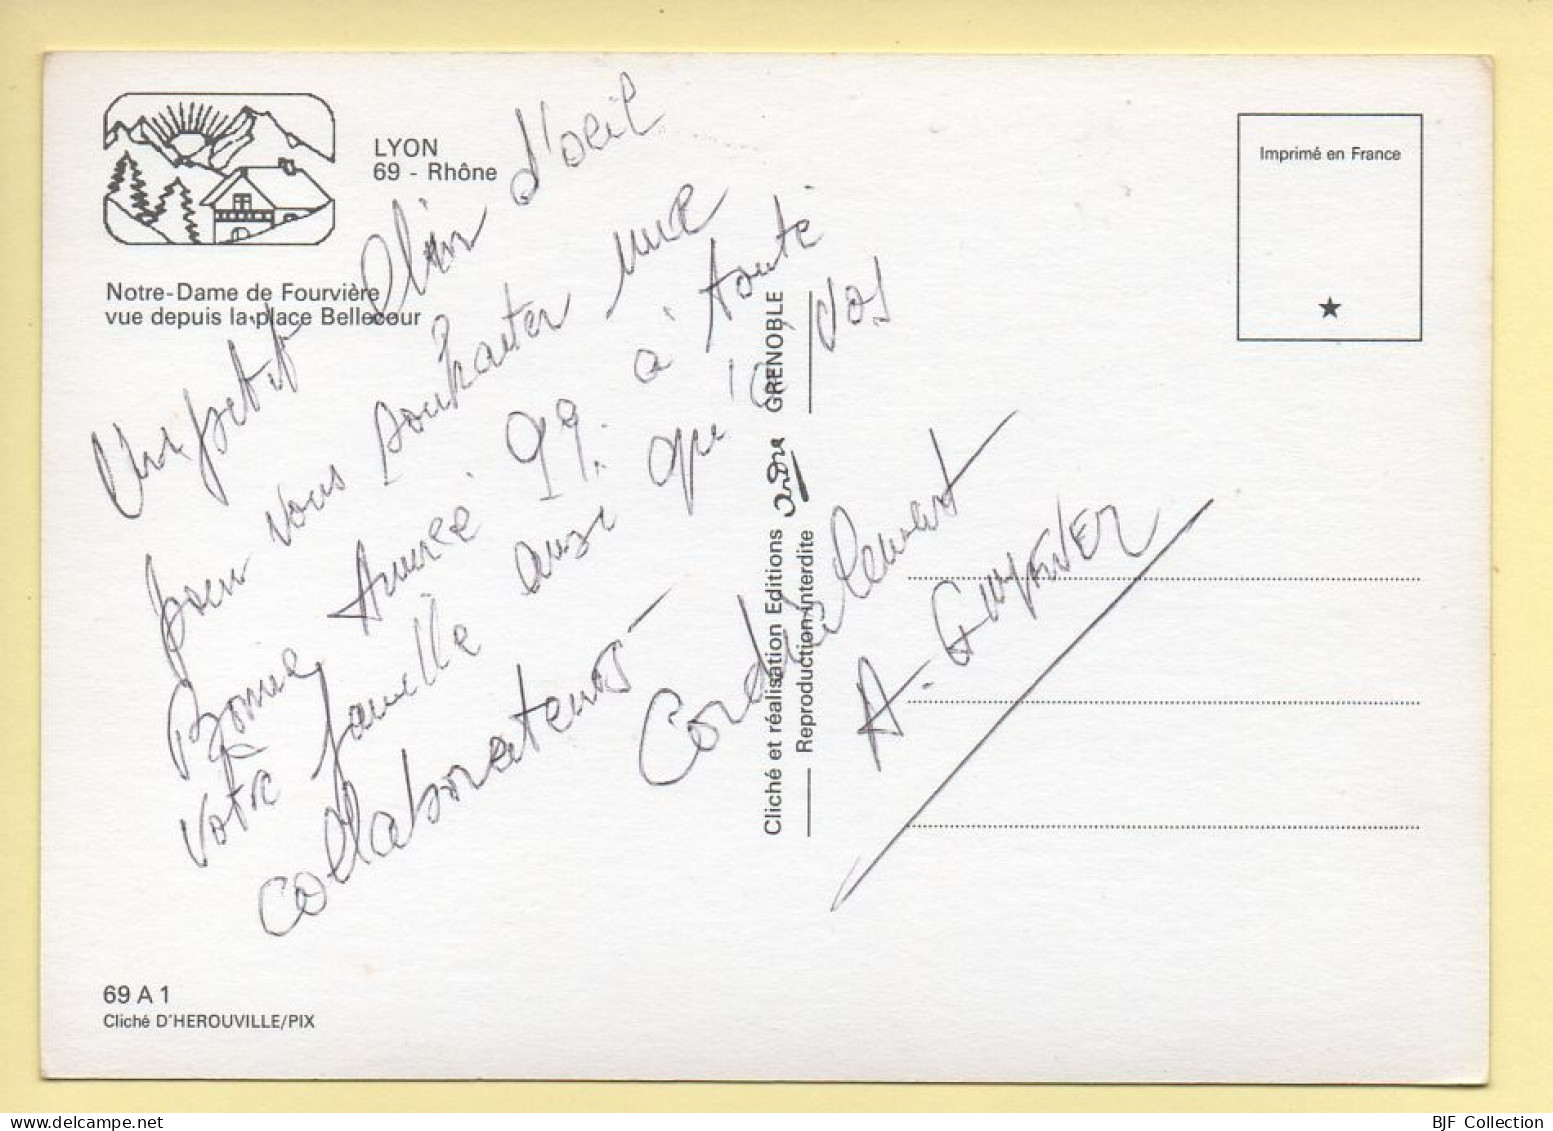 LYON
69 - Rhône
Notre-Dame de Fourvière
vue depuis la place Bellecour
Un petit clin d'oeil
pour vous souhaiter une
Bonne Année 99. à toute
votre famille ainsi qu'à vos
collaborateurs
Cordialement
A. Guyader
Imprimé en France
Cliché et réalisation Editions André GRENOBLE
Reproduction interdite
69 A 1
Cliché D'HEROUVILLE/PIX
BJF Collection